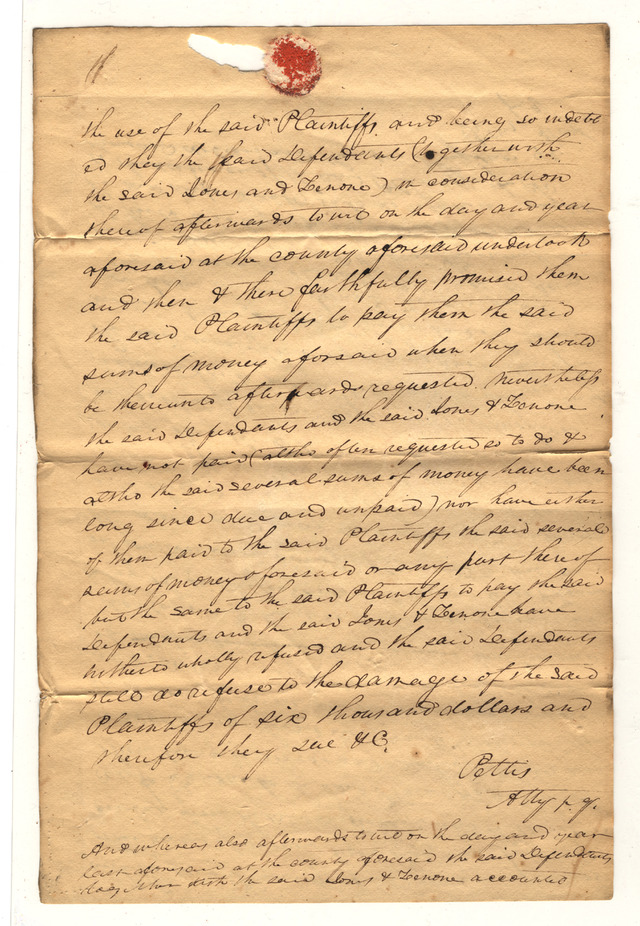 the use of the said Plaintiffs and being so indebt
ed they the said Defendants (together with
the said Jones and Tenone) in consideration
thereof afterwards to wit on the day and year
aforesaid at the county aforesaid undertook
and then & there faithfully promised them
the said Plaintiffs to pay them the said
sums of money aforsaid when they should
be thereunto afterwards requested. Nevertheless
the said Defendants and the said Jones & Tenone
have not paid (altho often requested so to do &
altho the said several sums of money have been
long since due and unpaid) nor have either
of them paid to the said Plaintiffs the said several
sums of money aforesaid or any part thereof
but the same to the said Plaintiffs to pay the said
Defendants and the said Jones & Tenone have
hitherto wholly refused and the said Defendants
still do refuse to the damage of the said
Plaintiffs of six thousand dollars and
therefore they sue &C.
Pettis
Atty p. q.
And whereas also afterwards to wit on the day and year
last aforesaid at the county aforesaid the said Defendants
together with the said Jones & Tenone accounted